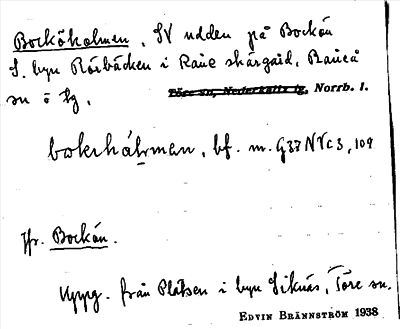 Bocköholmen, SV udden på Bockön
S. byn Rörbäcken i Råne skärgård, Råneå
sn o tg.
Töre sn, Nederkalix tg, Norrb. l.
bf. m. G37 NV c 3, 109
Jfr. Bockön.
Uppg. från Platsen i byn Siknäs, Töre sn.
EDVIN BRÄNNSTRÖM 1938